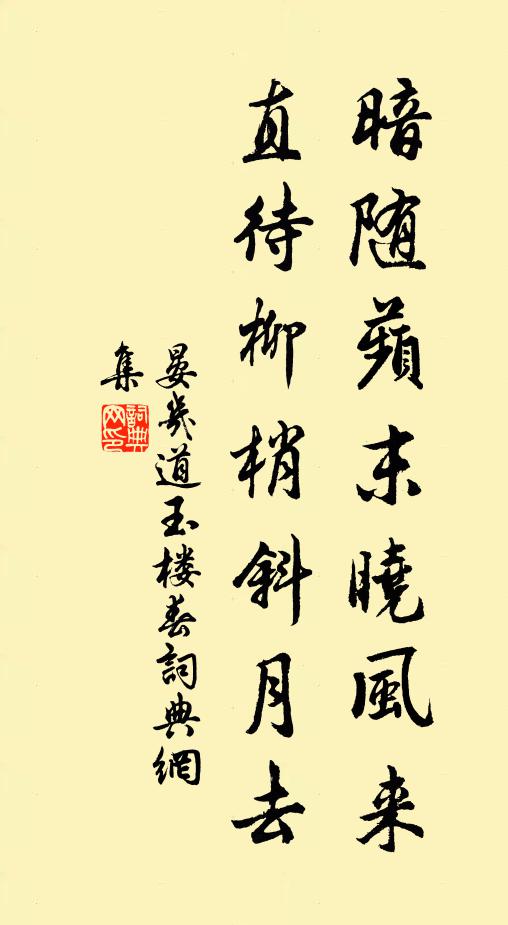 暗随蘋末曉風来
直待柳梢斜月去
晏幾道玉楼春詞典網
集
詞典网印